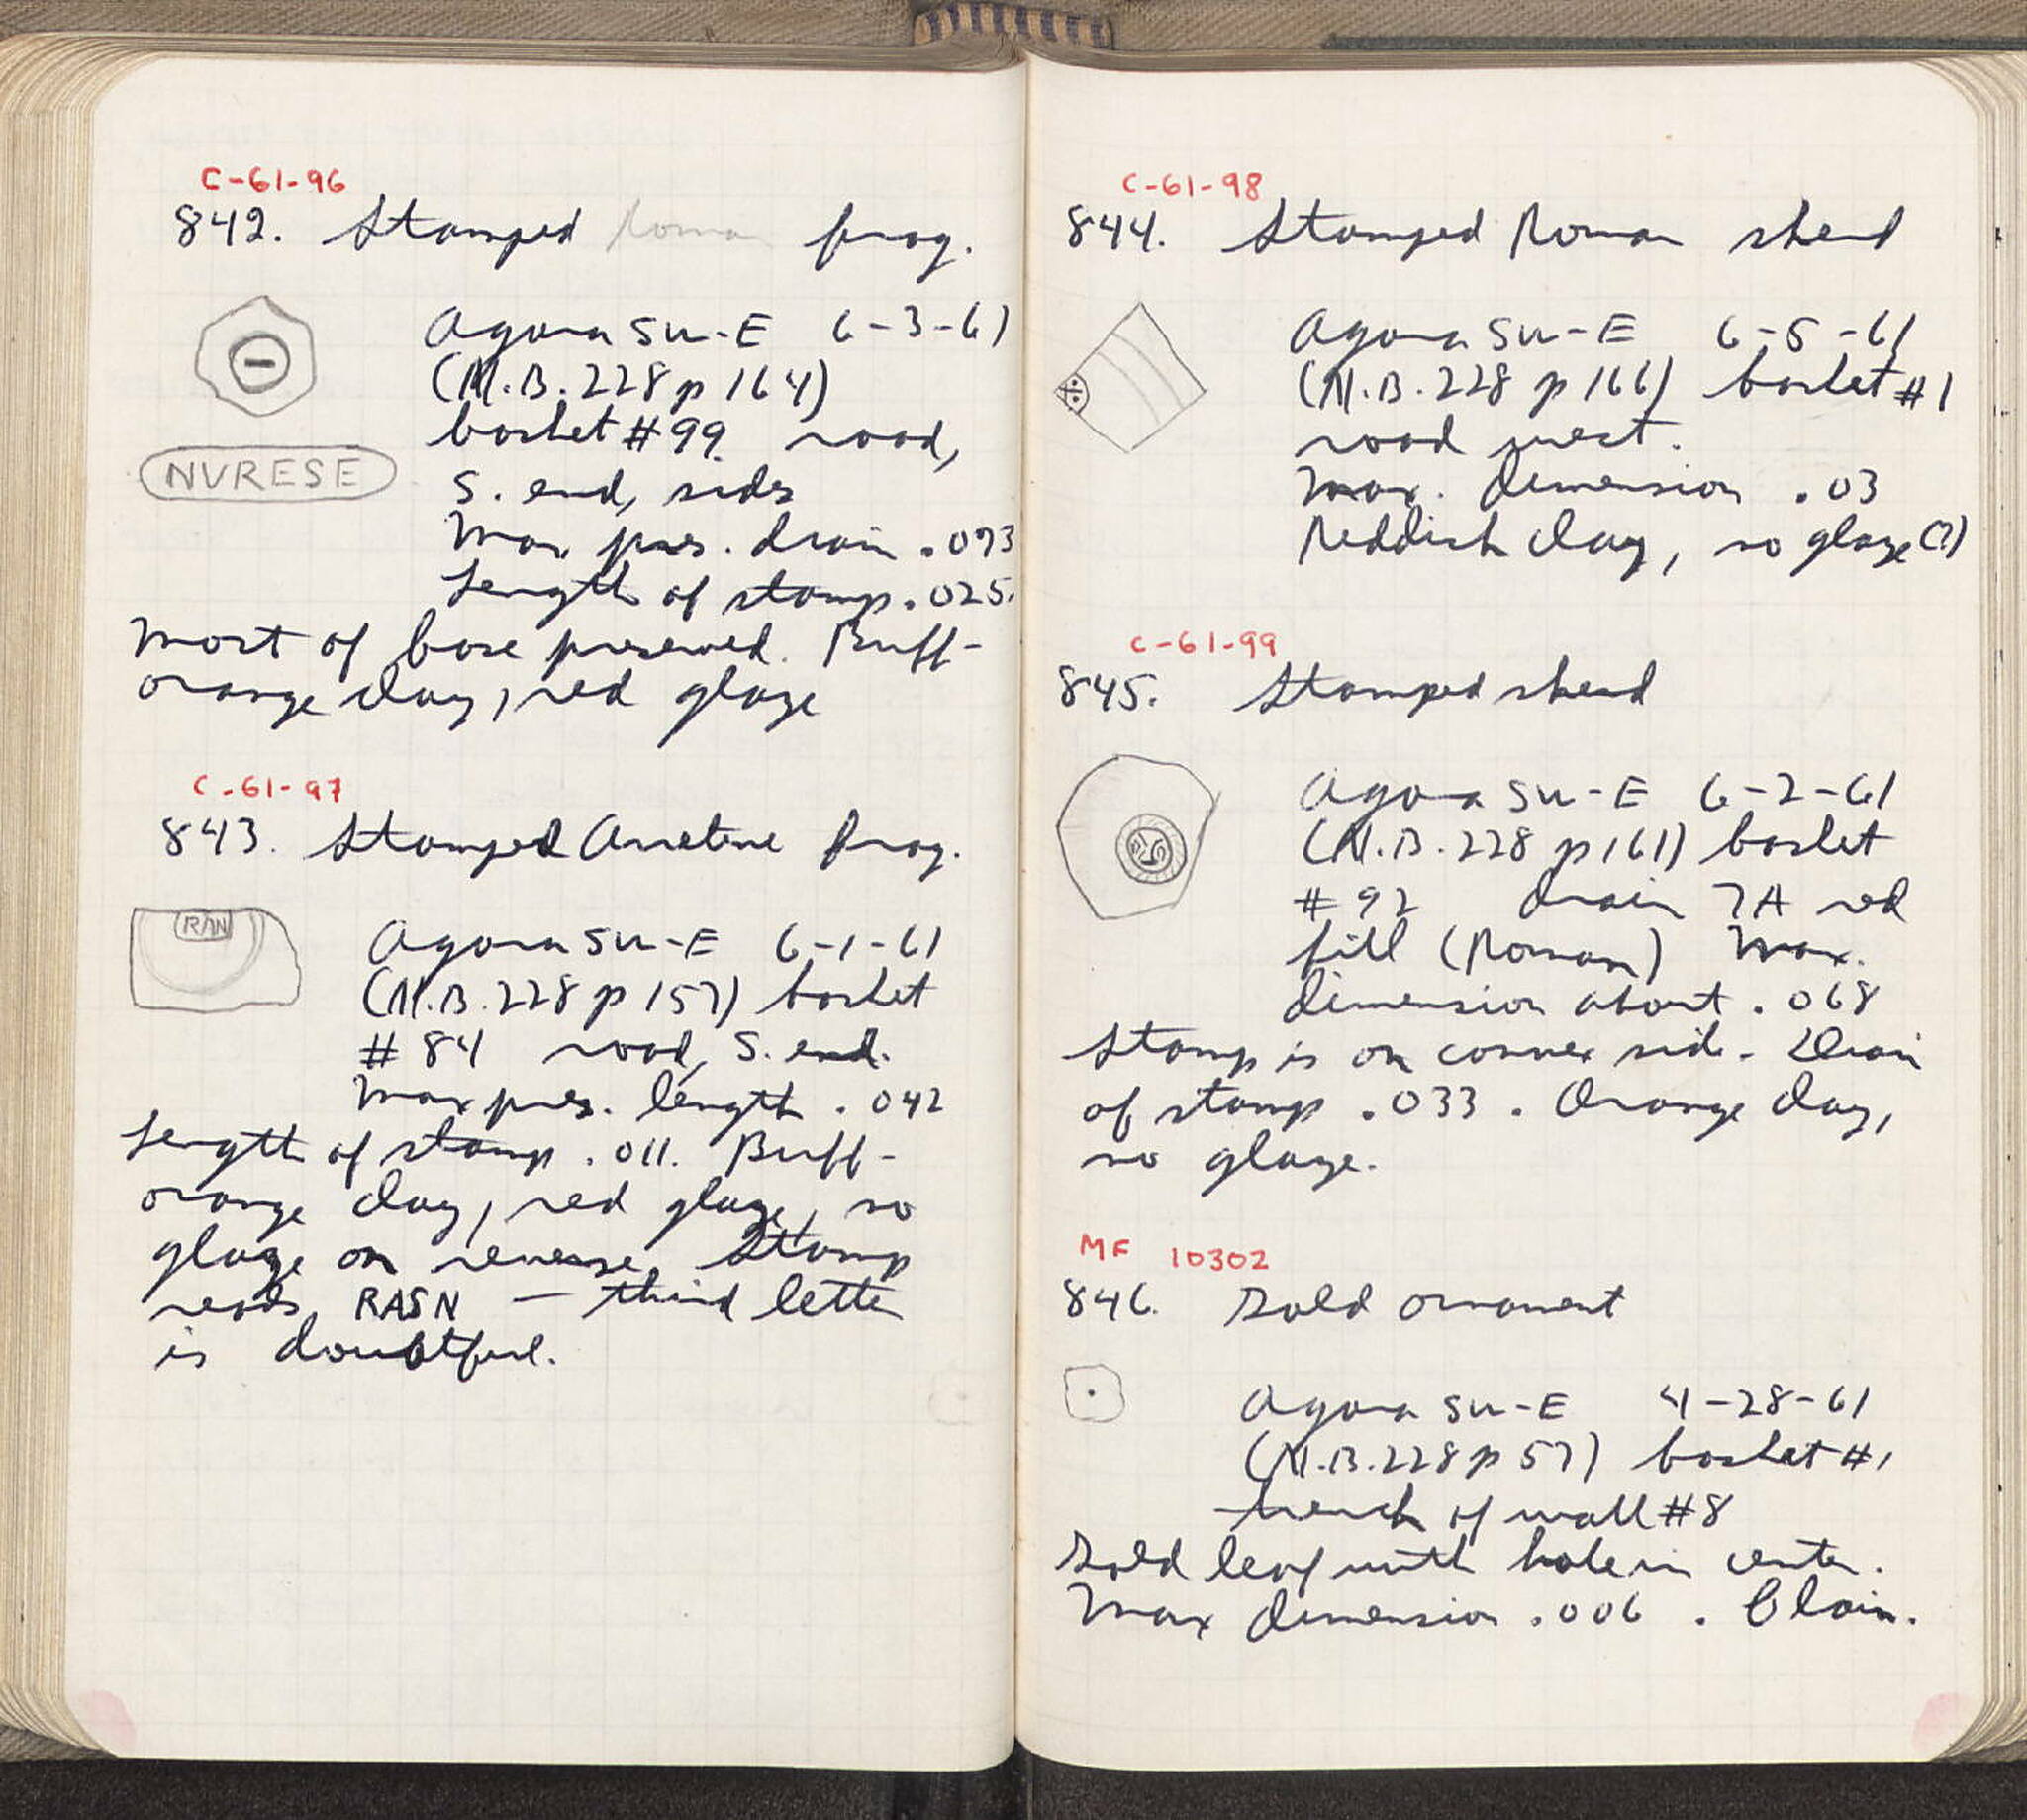 C-61-96
842. Stamped Roman frag.
Agora SW-E 6-3-61
(N.B. 228 p 164)
basket #99. road,
NVRESE
S. end, sides
Max pres. diam .073
Length of stamp .025.
Most of base preserved. Buff-
orange clay, red glaze
C-61-97
843. Stamped Arretine frag.
RAN
Agora SW-E 6-1-61
(N.B. 228 p 157) basket
#84 road, S. end.
Max pres. length .042
Length of stamp .011. Buff-
orange clay, red glaze, no
glaze on reverse. Stamp
reads RASN — third letter
is doubtful.
C-61-98
844. Stamped Roman sherd
Agora SW-E 6-5-61
(N.B. 228 p 166) basket #1
road west.
Max. dimension .03
Reddish clay, no glaze (?)
C-61-99
845. Stamped sherd
Agora SW-E 6-2-61
(N.B. 228 p 161) basket
#92 drain 7A red
fill (Roman) Max.
dimension about .068
Stamp is on convex side. Diam
of stamp .033. Orange clay,
no glaze.
MF 10302
846. Gold ornament
Agora SW-E 4-28-61
(N.B. 228 p 57) basket #1
trench of wall #8
Gold leaf with hole in center.
Max dimension .006. Plain.